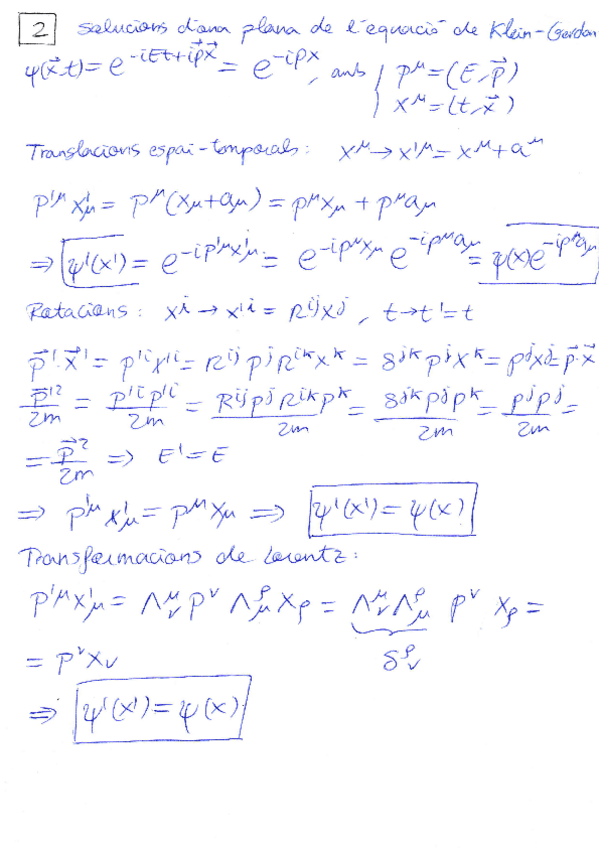 2 Solucions d'ona plana de l'equació de Klein-Gordon
ψ(x⃗,t) = e^{-iEt+ip⃗x⃗} = e^{-ipx}, amb { p^μ = (E, p⃗)
x^μ = (t, x⃗)
Translacions espai-temporals: x^μ → x'^μ = x^μ + a^μ
p'^μ x'_μ = p^μ(x_μ + a_μ) = p^μ x_μ + p^μ a_μ
⇒ ψ'(x') = e^{-ip'^μ x'_μ} = e^{-ip^μ x_μ} e^{-ip^μ a_μ} = ψ(x)e^{-ip^μ a_μ}
Rotacions: x^i → x'^i = R^{ij}x^j, t → t' = t
p⃗'·x⃗' = p'^i x'^i = R^{ij} p^j R^{ik} x^k = δ^{jk} p^j x^k = p^j x^j = p⃗·x⃗
p⃗'²/2m = p'^i p'^i/2m = R^{ij} p^j R^{ik} p^k/2m = δ^{jk} p^j p^k/2m = p^j p^j/2m =
= p⃗²/2m ⇒ E' = E
⇒ p'^μ x'_μ = p^μ x_μ ⇒ ψ'(x') = ψ(x)
Transformacions de Lorentz:
p'^μ x'_μ = Λ^μ_ν p^ν Λ^ρ_μ x_ρ = Λ^μ_ν Λ^ρ_μ p^ν x_ρ =
= p^ν x_ν δ^ρ_ν
⇒ ψ'(x') = ψ(x)